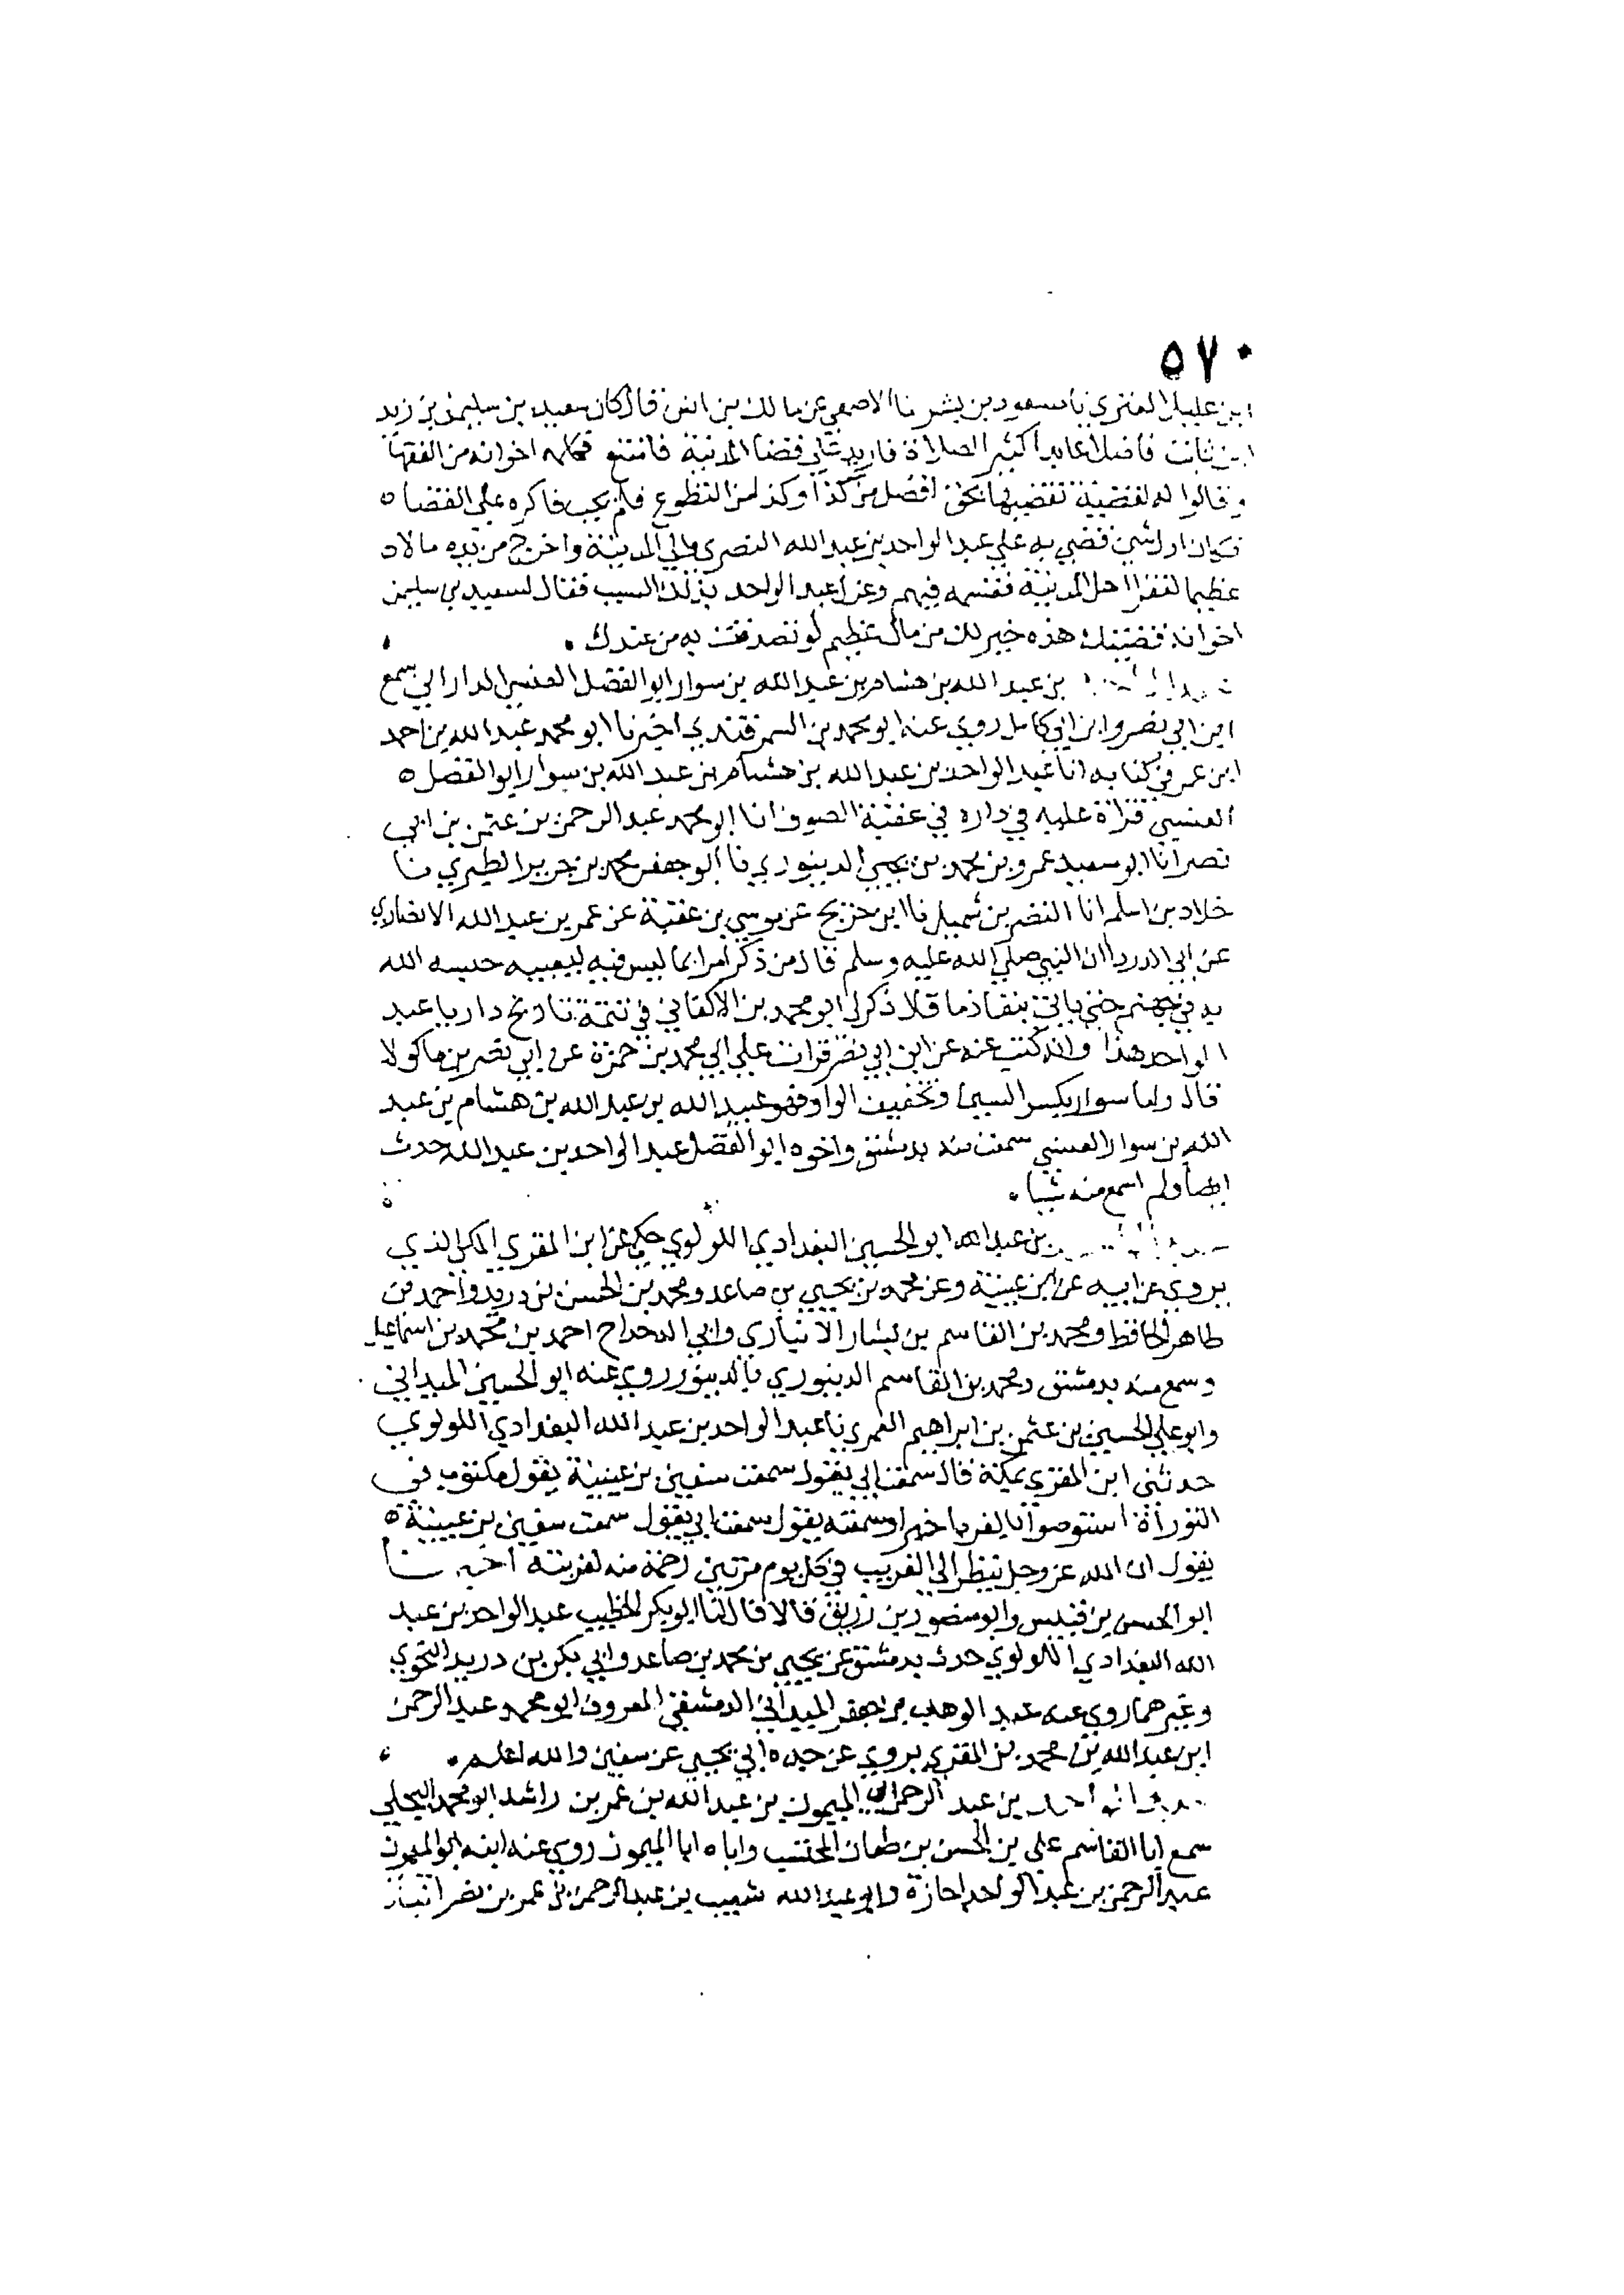 ٥٧٠
ابن عليل العنزي نا مسعود بن بشر نا الاصمعي عن مالك بن انس قال كان سعيد بن سليمن بن زيد
ابن ثابت فاضلا عابدا كثير الصلاة فاريد علي قضا المدينة فامتنع فكلمه اخوانه من الفقها
وقالوا له لقضية تقضيها بحق افضل من كذا وكذا من التطوع فلم يجب فاكره علي القضا ه
فكان اول شي قضي به علي عبد الواحد بن عبد الله النصري والي المدينة واخرج من يده مالا
عظيما لفقرا اهل المدينة فقسمه فيهم وعزل عبد الواحد بذلك السبب فقال لسعيد بن سليمن
اخوانه قضيتك هذه خير لك من مال عظيم لو تصدقت به من عندك .
بن عبد الله بن هشام بن عبد الله بن سوار ابو الفضل العنسي الداراني سمع
ابن ابي نصر وابن ابي كامل روي عنه ابو محمد بن السمرقندي اخبرنا ابو محمد عبد الله بن احمد
ابن عمر في كتابه انا عبد الواحد بن عبد الله بن هشام بن عبد الله بن سوار ابو الفضل ه
العنسي قراة عليه في داره في عقبة الصوف انا ابو محمد عبد الرحمن بن عثمن بن ابي
نصر انا ابو سعيد عمرو بن محمد بن يحيي الدينوري نا ابو جعفر محمد بن جرير الطبري نا
خلاد بن اسلم انا النضر بن شميل نا ابن جريج عن موسي بن عقبة عن عمر بن عبد الله الانصاري
عن ابي الدردا ان النبي صلي الله عليه وسلم قال من ذكر امرا بما ليس فيه ليعيبه حبسه الله
به في جهنم حتي ياتي بنفاذ ما قال ذكر لي ابو محمد بن الاكفاني في تتمة تاريخ داريا عبد
الواحد هذا وانه كتب عنه عن ابن ابي نصر قرات علي ابي محمد بن حمزة عن ابي نصر بن ماكولا
قال واما سوار بكسر السين وتخفيف الواو فهو عبيد الله بن عبد الله بن هشام بن عبد
الله بن سوار العنسي سمعت منه بدمشق واخوه ابو الفضل عبد الواحد بن عبد الله حدث
ايضا ولم اسمع منه شيا .
بن عبد الله ابو الحسين البغدادي اللولوي حكي عن ابن المقري المكي الذي
يروي عن ابيه عن ابن عيينة وعن محمد بن يحيي بن صاعد ومحمد بن الحسن بن دريد واحمد بن
طاهر الحافظ ومحمد بن القاسم بن بشار الانباري وابي الدحداح احمد بن محمد بن اسماعيل
وسمع منه بدمشق ومحمد بن القاسم الدينوري بالدينور روي عنه ابو الحسين الميداني
وابو علي الحسين بن عثمن بن ابراهيم العمري نا عبد الواحد بن عبد الله البغدادي اللولوي
حدثني ابن المقري بمكة قال سمعت ابي يقول سمعت سفين بن عيينة يقول مكتوب في
التوراة استوصوا بالغربا خيرا وسمعته يقول سمعت ابي يقول سمعت سفين بن عيينة ه
يقول ان الله عز وجل ينظر الي الغريب في كل يوم مرتين رحمة منه لغربته اخبرنا
ابو الحسن بن قبيس وابو منصور بن زريق قالا قال لنا ابو بكر الخطيب عبد الواحد بن عبد
الله البغدادي اللولوي حدث بدمشق عن يحيي بن محمد بن صاعد وابي بكر بن دريد النحوي
وغيرهما روي عنه عبد الوهاب بن جعفر الميداني الدمشقي المعروف ابو محمد عبد الرحمن
ابن عبد الله بن محمد بن المقري يروي عن جده ابي يحيي عن سفين والله اعلم .
بن عبد الرحمن الميمون بن عبد الله بن عمر بن راشد ابو محمد البجلي
سمع ابا القاسم علي بن الحسن بن طعان المحتسب واباه ابا الميمون روي عنه ابنه ابو الميمون
عبد الرحمن بن عبد الواحد اجازة وابو عبد الله شبيب بن عبد الرحمن بن عمر بن نصر انبانا